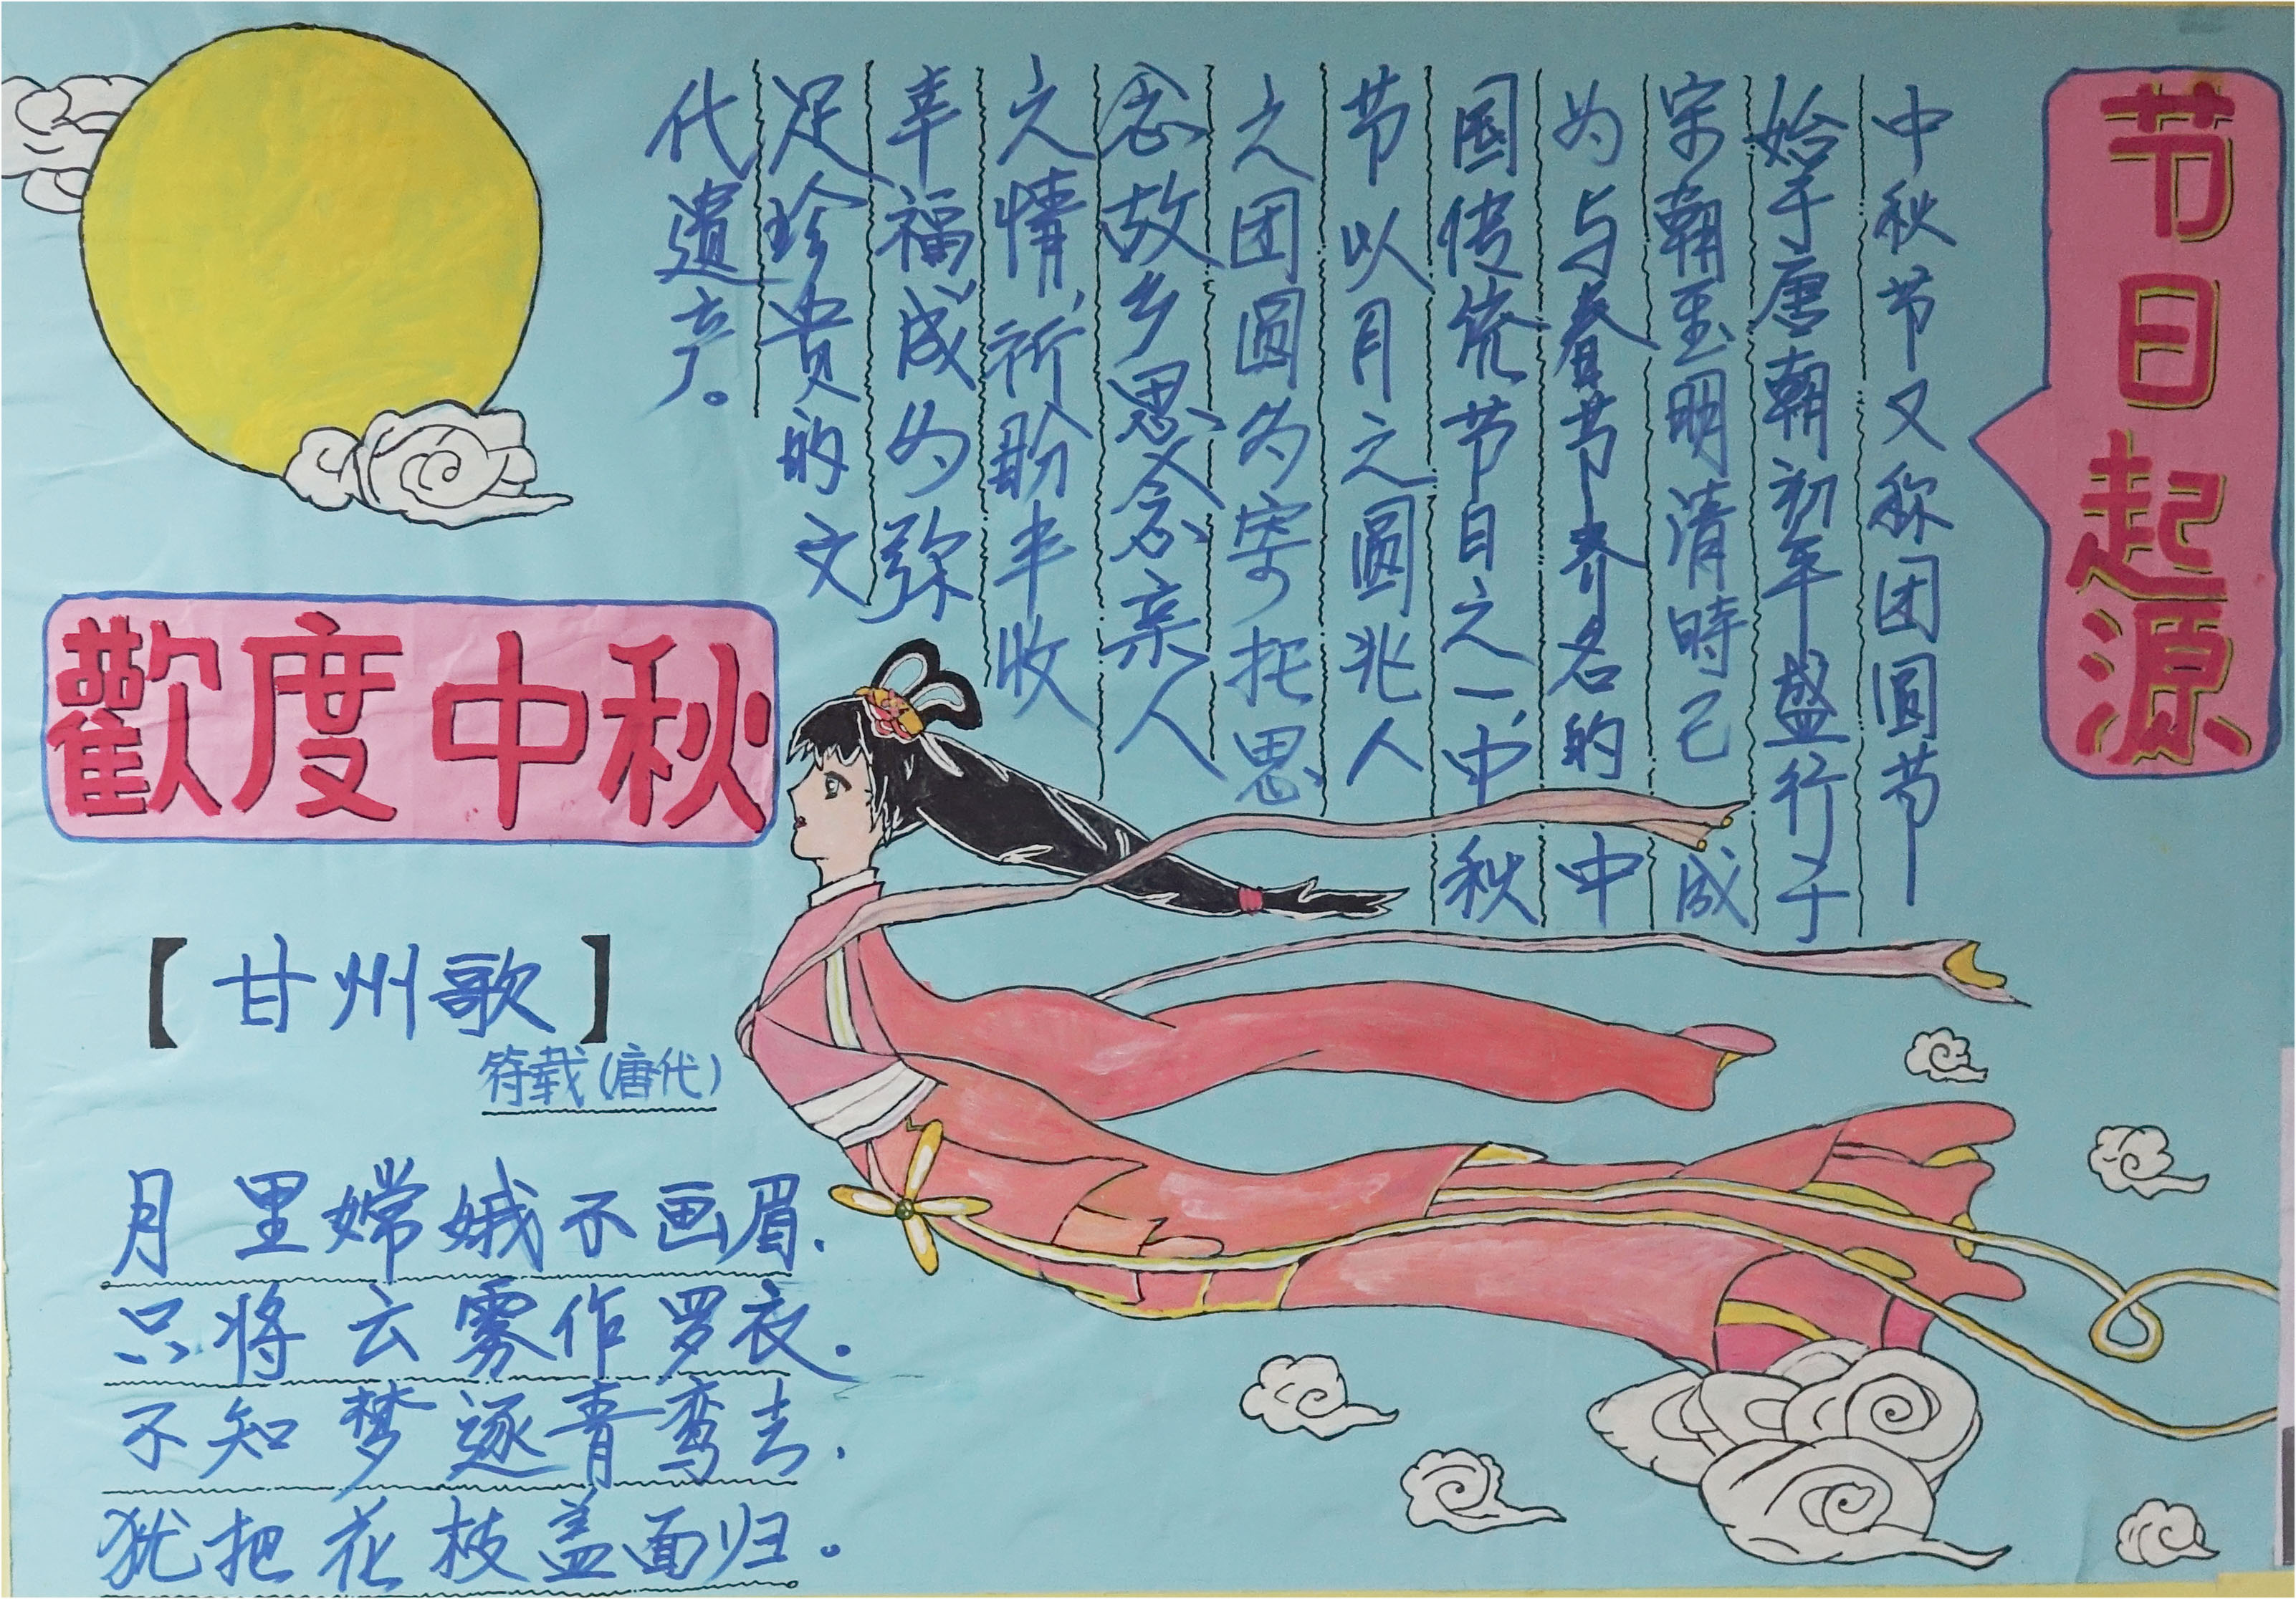 节日起源
中秋节又称团圆节
始于唐朝初年盛行于
宋朝至明清時已成
为与春节齐名的中
国传统节日之一,中秋
节以月之圆兆人
之团圆为寄托思
念故乡思念亲人
之情,祈盼丰收
幸福,成为弥
足珍贵的文
代遗产。
歡度中秋
【甘州歌】
符载(唐代)
月里嫦娥不画眉,
只将云雾作罗衣。
不知梦逐青鸾去,
犹把花枝盖面归。